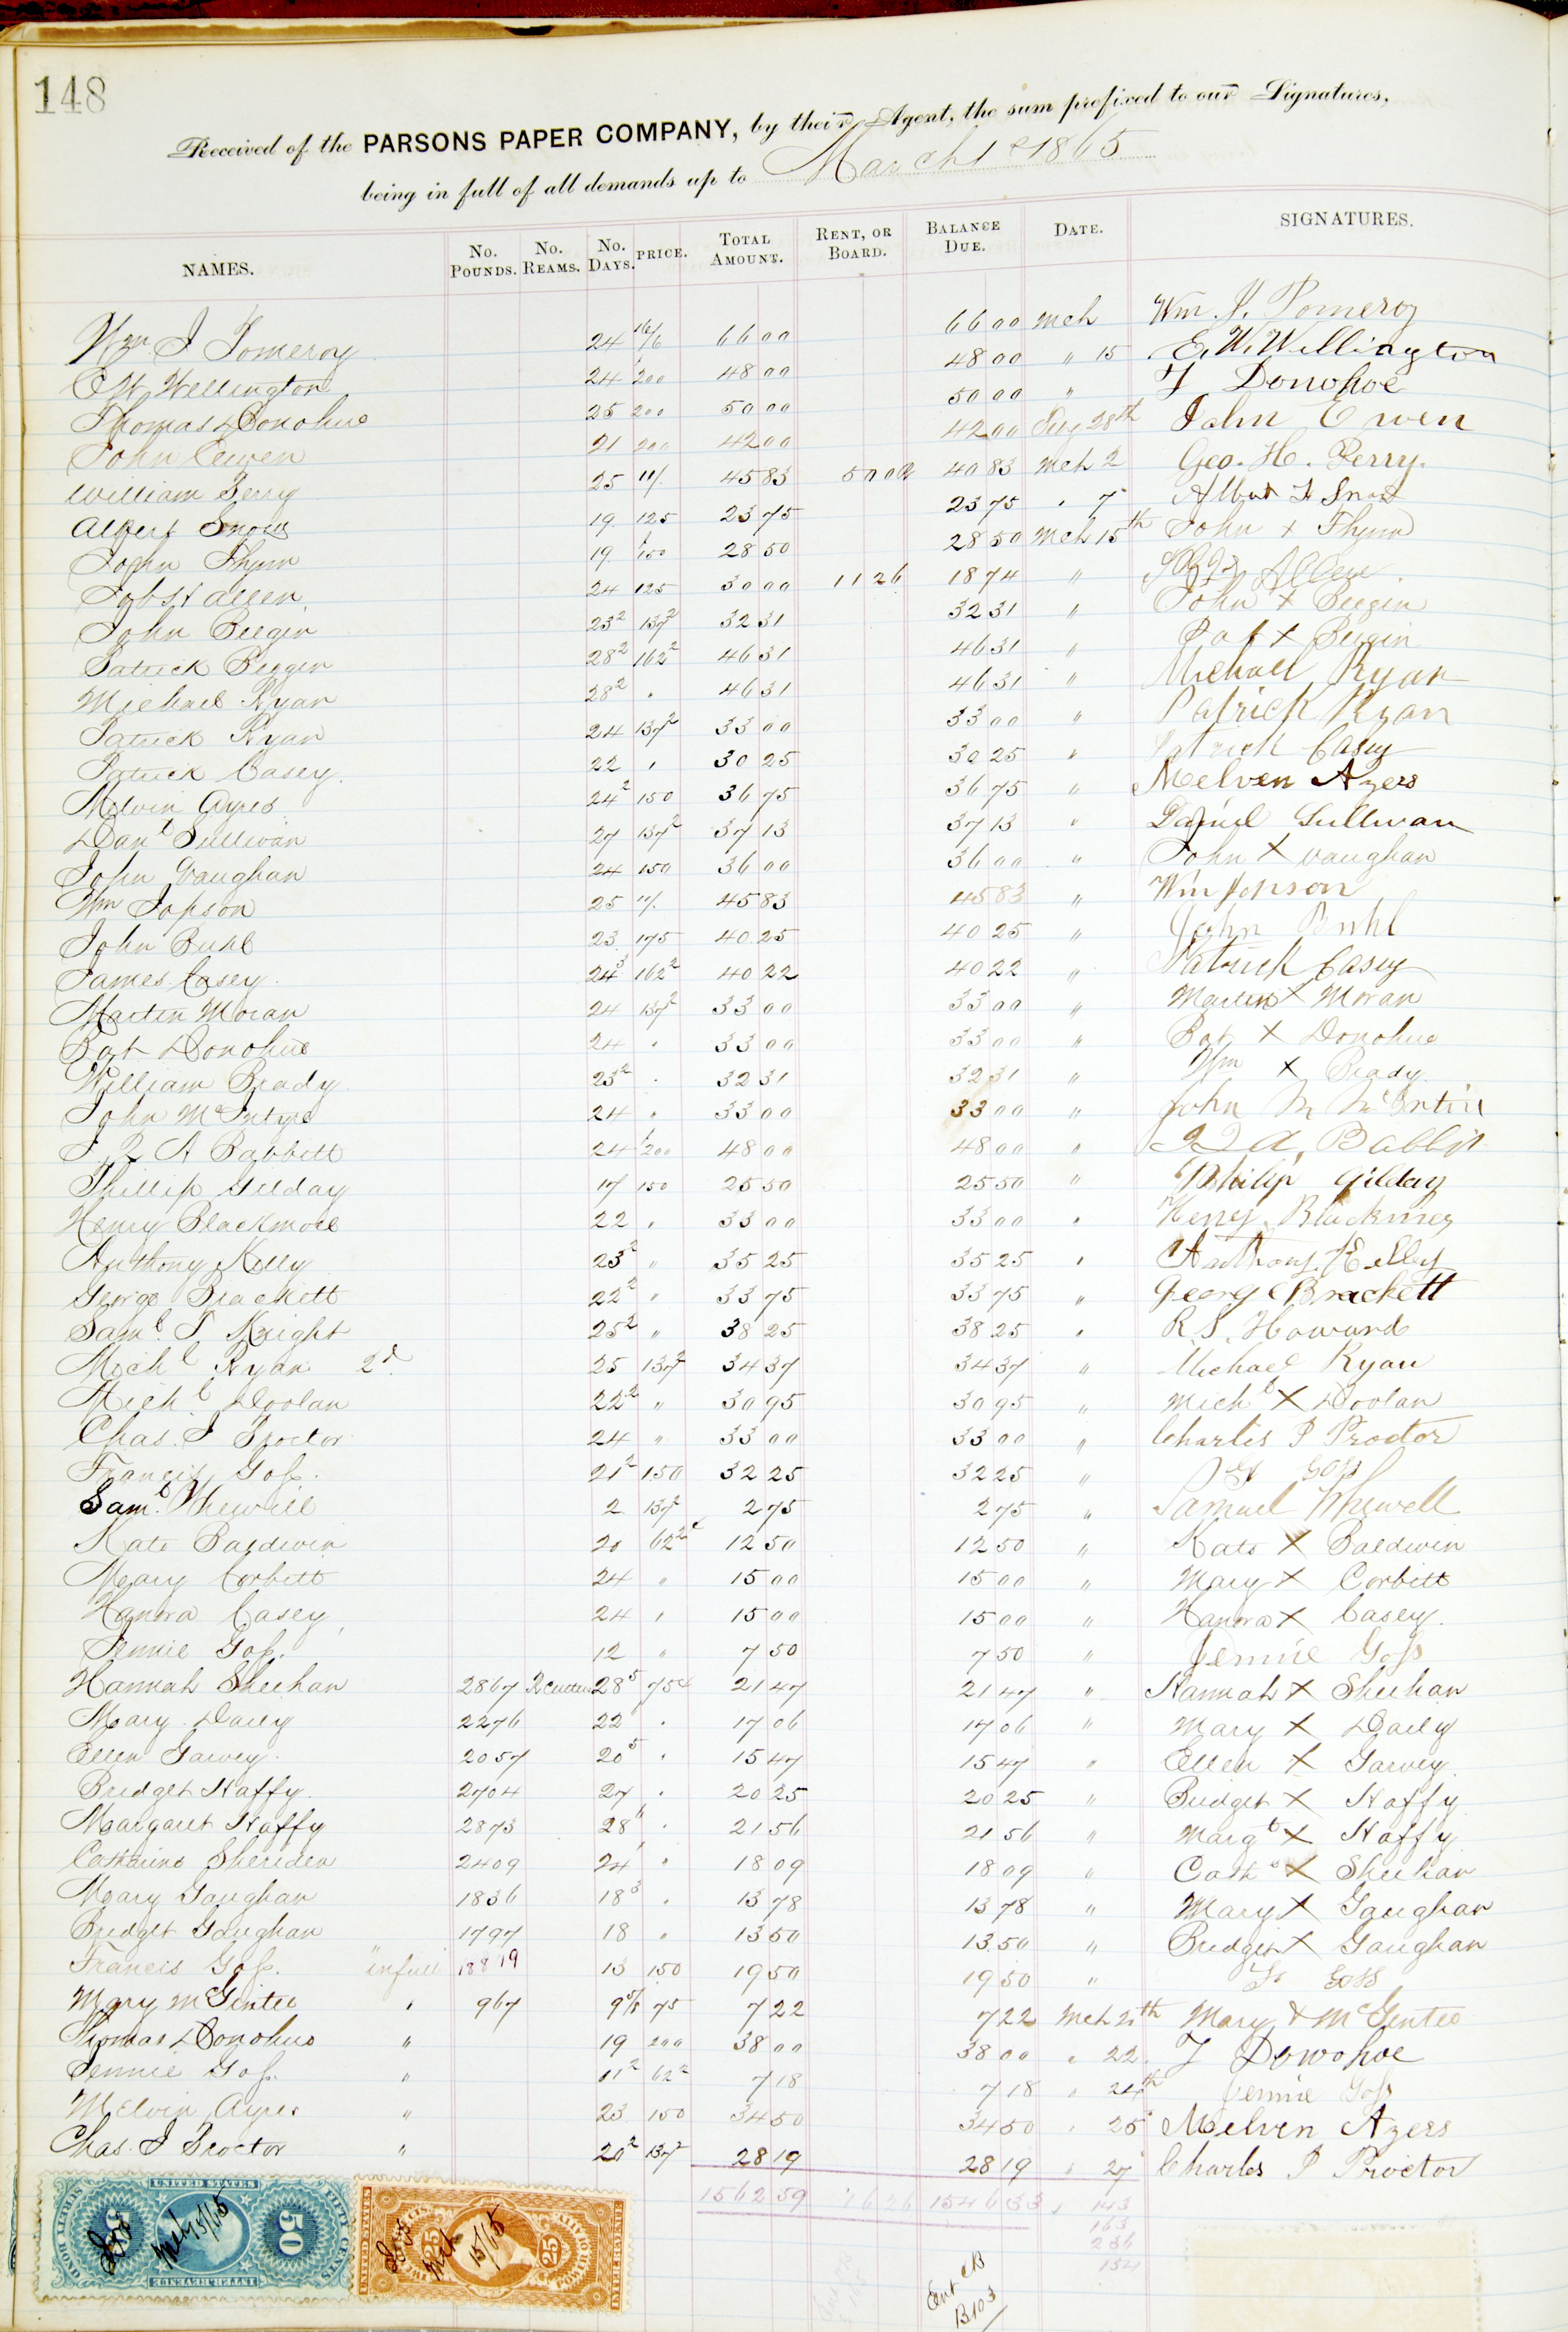 148
Received of the PARSONS PAPER COMPANY, by their Agent, the sum prefixed to our Signatures,
being in full of all demands up to March 1st 1865
NAMES. No. POUNDS. No. REAMS. No. DAYS. PRICE. TOTAL AMOUNT. RENT, OR BOARD. BALANCE DUE. DATE. SIGNATURES.
Wm J Pomeroy 24 16/6 66 00 66 00 Mch Wm. J. Pomeroy
E W Wellington 24 200 48 00 48 00 " 15 E. W. Wellington
Thomas Donohue 25 200 50 00 50 00 " T Donohoe
John Cewen 21 200 42 00 42 00 28th John Ewen
William Perry 25 11/ 45 83 5 00 40 83 Mch 2 Geo. H. Perry.
Albert Snow 19 125 23 75 23 75 " 7 Albert H Snow
John Flynn 19 150 28 50 28 50 Mch 15th John + Flynn
Allen 24 125 30 00 11 26 18 74 " Allen
John Bergin 23 2 137 2 32 31 32 31 " John + Bergin
Patrick Bergin 28 2 162 2 46 31 46 31 " Pat + Bergin
Michael Ryan 28 2 " 46 31 46 31 " Michael Ryan
Patrick Ryan 24 137 2 33 00 33 00 " Patrick Ryan
Patrick Casey 22 " 30 25 30 25 " Patrick Casey
Melvin Ayres 24 2 150 36 75 36 75 " Melven Azers
Danl Sullivan 27 137 2 37 13 37 13 " Daniel Sullivan
John Vaughan 24 150 36 00 36 00 " John X Vaughan
Wm Jopson 25 11/ 45 83 45 83 " Wm Jopson
John Buhl 23 175 40 25 40 25 " John Buhl
James Casey 24 3 162 2 40 22 40 22 " Patrick Casey
Martin Moran 24 137 2 33 00 33 00 " Martin X Moran
Pat Donohue 24 " 33 00 33 00 " Pat X Donohue
William Brady 23 2 " 32 31 32 31 " Wm X Brady
John McIntyre 24 " 33 00 33 00 " John M McIntire
J. Q A Babbitt 24 200 48 00 48 00 " J Q A. Babbit
Phillip Gilday 17 150 25 50 25 50 " Philip Gilday
Henry Blackmore 22 " 33 00 33 00 " Henry Blackmer
Anthony Kelly 23 2 " 35 25 35 25 " Anthony Kelley
George Brackett 22 2 " 33 75 33 75 " George Brackett
Saml. T Knight 25 2 " 38 25 38 25 " R. S. Howard
Michl Ryan 2d 25 137 2 34 37 34 37 " Michael Ryan
Michl Doolan 22 2 " 30 95 30 95 " Michl X Doolan
Chas. P Proctor 24 " 33 00 33 00 " Charles P Proctor
Francis Goss. 21 2 150 32 25 32 25 " Goss
Saml. Whewell 2 137 2 2 75 2 75 " Samuel Whewell
Kate Baldwin 20 62 2 12 50 12 50 " Kate X Baldwin
Mary Corbitt 24 " 15 00 15 00 " Mary X Corbitt
Hanora Casey 24 " 15 00 15 00 " Hanora X Casey.
Jennie Goss. 12 " 7 50 7 50 " Jennie Goss
Hannah Sheehan 2867 R Cutter 28 5 75 c 21 47 21 47 " Hannah X Sheehan
Mary Daily 2276 22 " 17 06 17 06 " Mary X Daily
Ellen Garvey. 2057 20 5 " 15 47 15 47 " Ellen X Garvey
Bridget Haffy. 2704 27 " 20 25 20 25 " Bridget X Haffy
Margaret Haffy 2873 28 " 21 56 21 56 " Margt X Haffy
Catharine Sheriden 2409 24 " 18 09 18 09 " Cath X Sheehan
Mary Gaughan 1836 18 3 " 13 78 13 78 " Mary X Gaughan
Bridget Gaughan 1797 18 " 13 50 13 50 " Bridget X Gaughan
Francis Goss. "in full" 13 150 19 50 19 50 " Fr Goss
Mary McGintee " 967 9 5/8 75 7 22 7 22 Mch Mary X McGintee
Thomas Donohue " 19 200 38 00 38 00 " 22 T Donohoe
Jennie Goss. " 11 2 62 2 7 18 7 18 " 24th Jennie Goss
Melvin Ayres " 23 150 34 50 34 50 " 25 Melven Azers
Chas. P Proctor " 20 2 137 2 28 19 28 19 " 27 Charles P Proctor
1562 59 16 26 1546 33 143
163
236
154
UNITED STATES
BOND
FIFTY CENTS
50
INTER. REVENUE
Mch 15/65
UNITED STATES
25
INTER. REVENUE
Mch 15/65
Ent CB
B103